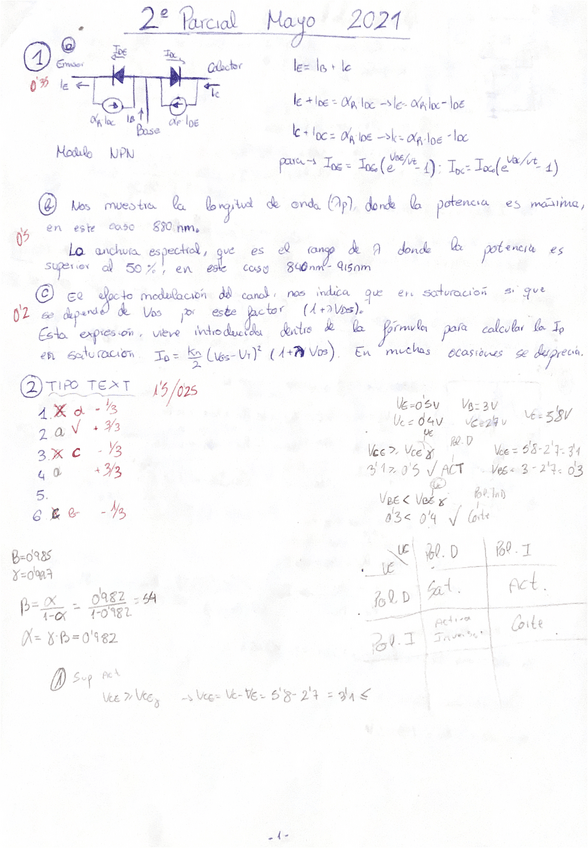 2º Parcial Mayo 2021
1 a
0'35
Emisor IDE IDC Colector
IE IC
αR IDC IB αF IDE
Base
Modulo NPN
IE = IB + IC
IE + IDE = αR IDC → IE = αR IDC - IDE
IC + IDC = αR IDE → IC = αR·IDE - IDC
para → IDE = IDE0 (e^VBE/Vt - 1) : IDC = IDC0 (e^VBC/Vt - 1)
b Nos muestra la longitud de onda (λp), donde la potencia es máxima,
en este caso 880 nm.
0'5
La anchura espectral, que es el rango de λ donde la potencia es
superior al 50%, en este caso 840nm - 915nm
c El efecto modulación del canal, nos indica que en saturación si que
0'2
se depende de VDS por este factor (1+λVDS).
Esta expresión, viene introducida dentro de la fórmula para calcular la ID
en saturación ID = Kn/2 (VGS-VT)² (1+λ VDS). En muchas ocasiones se desprecia.
2 TIPO TEXT 1'5/025
1. d - 1/3
2 a √ + 3/3
3. c - 1/3
4 a + 3/3
5.
6 - 1/3
VE=0'5V VB=3V
VC=0'4V VE=2'7V VC=5'8V
VCE ≥ VCE γ Pol. D VCE = 5'8-2'7=3'1
3'1 ≥ 0'5 √ ACT VBE = 3-2'7=0'3
VBE < VBE γ
0'3 < 0'4 √ Corte
UC Pol. D Pol. I
UE
Pol. D Sat. Act.
Pol. I Activa Inversa Corte
B=0'985
γ=0'997
B = α/1-α = 0'982/1-0'982 = 54
α = γ·B = 0'982
1 Sup Act
VCE ≥ VCEγ → VCE = VC-VE = 5'8-2'7 = 3'1 ≤
-1-